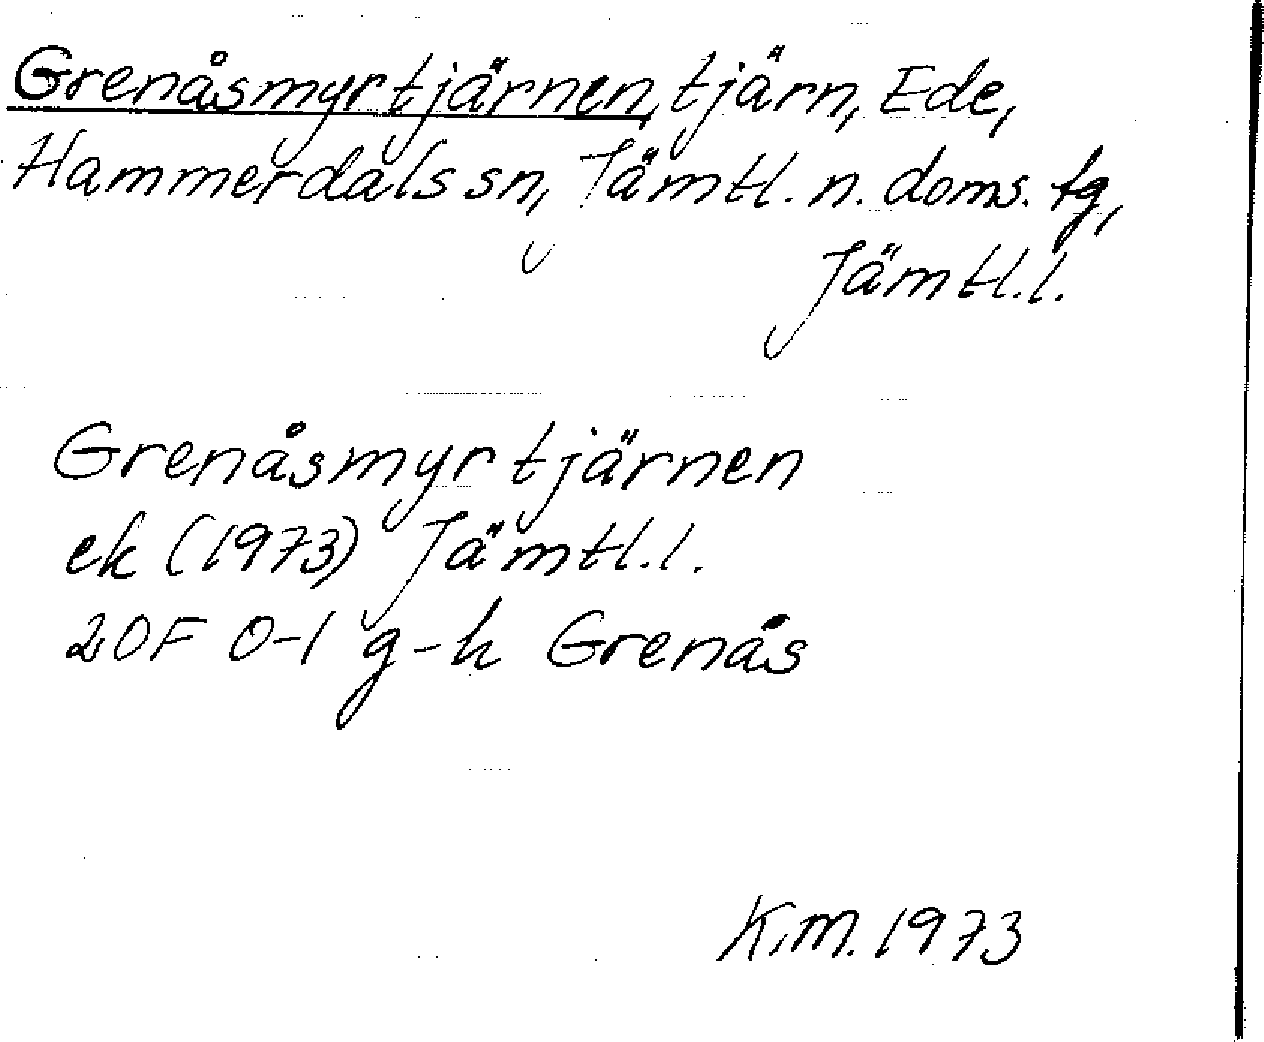 Grenåsmyrtjärnen, tjärn, Ede,
Hammerdals sn, Jämtl. n. doms. tg,
Jämtl. l.
Grenåsmyrtjärnen
ek (1973) Jämtl. l.
20F 0-1 g-h Grenås
K.M. 1973